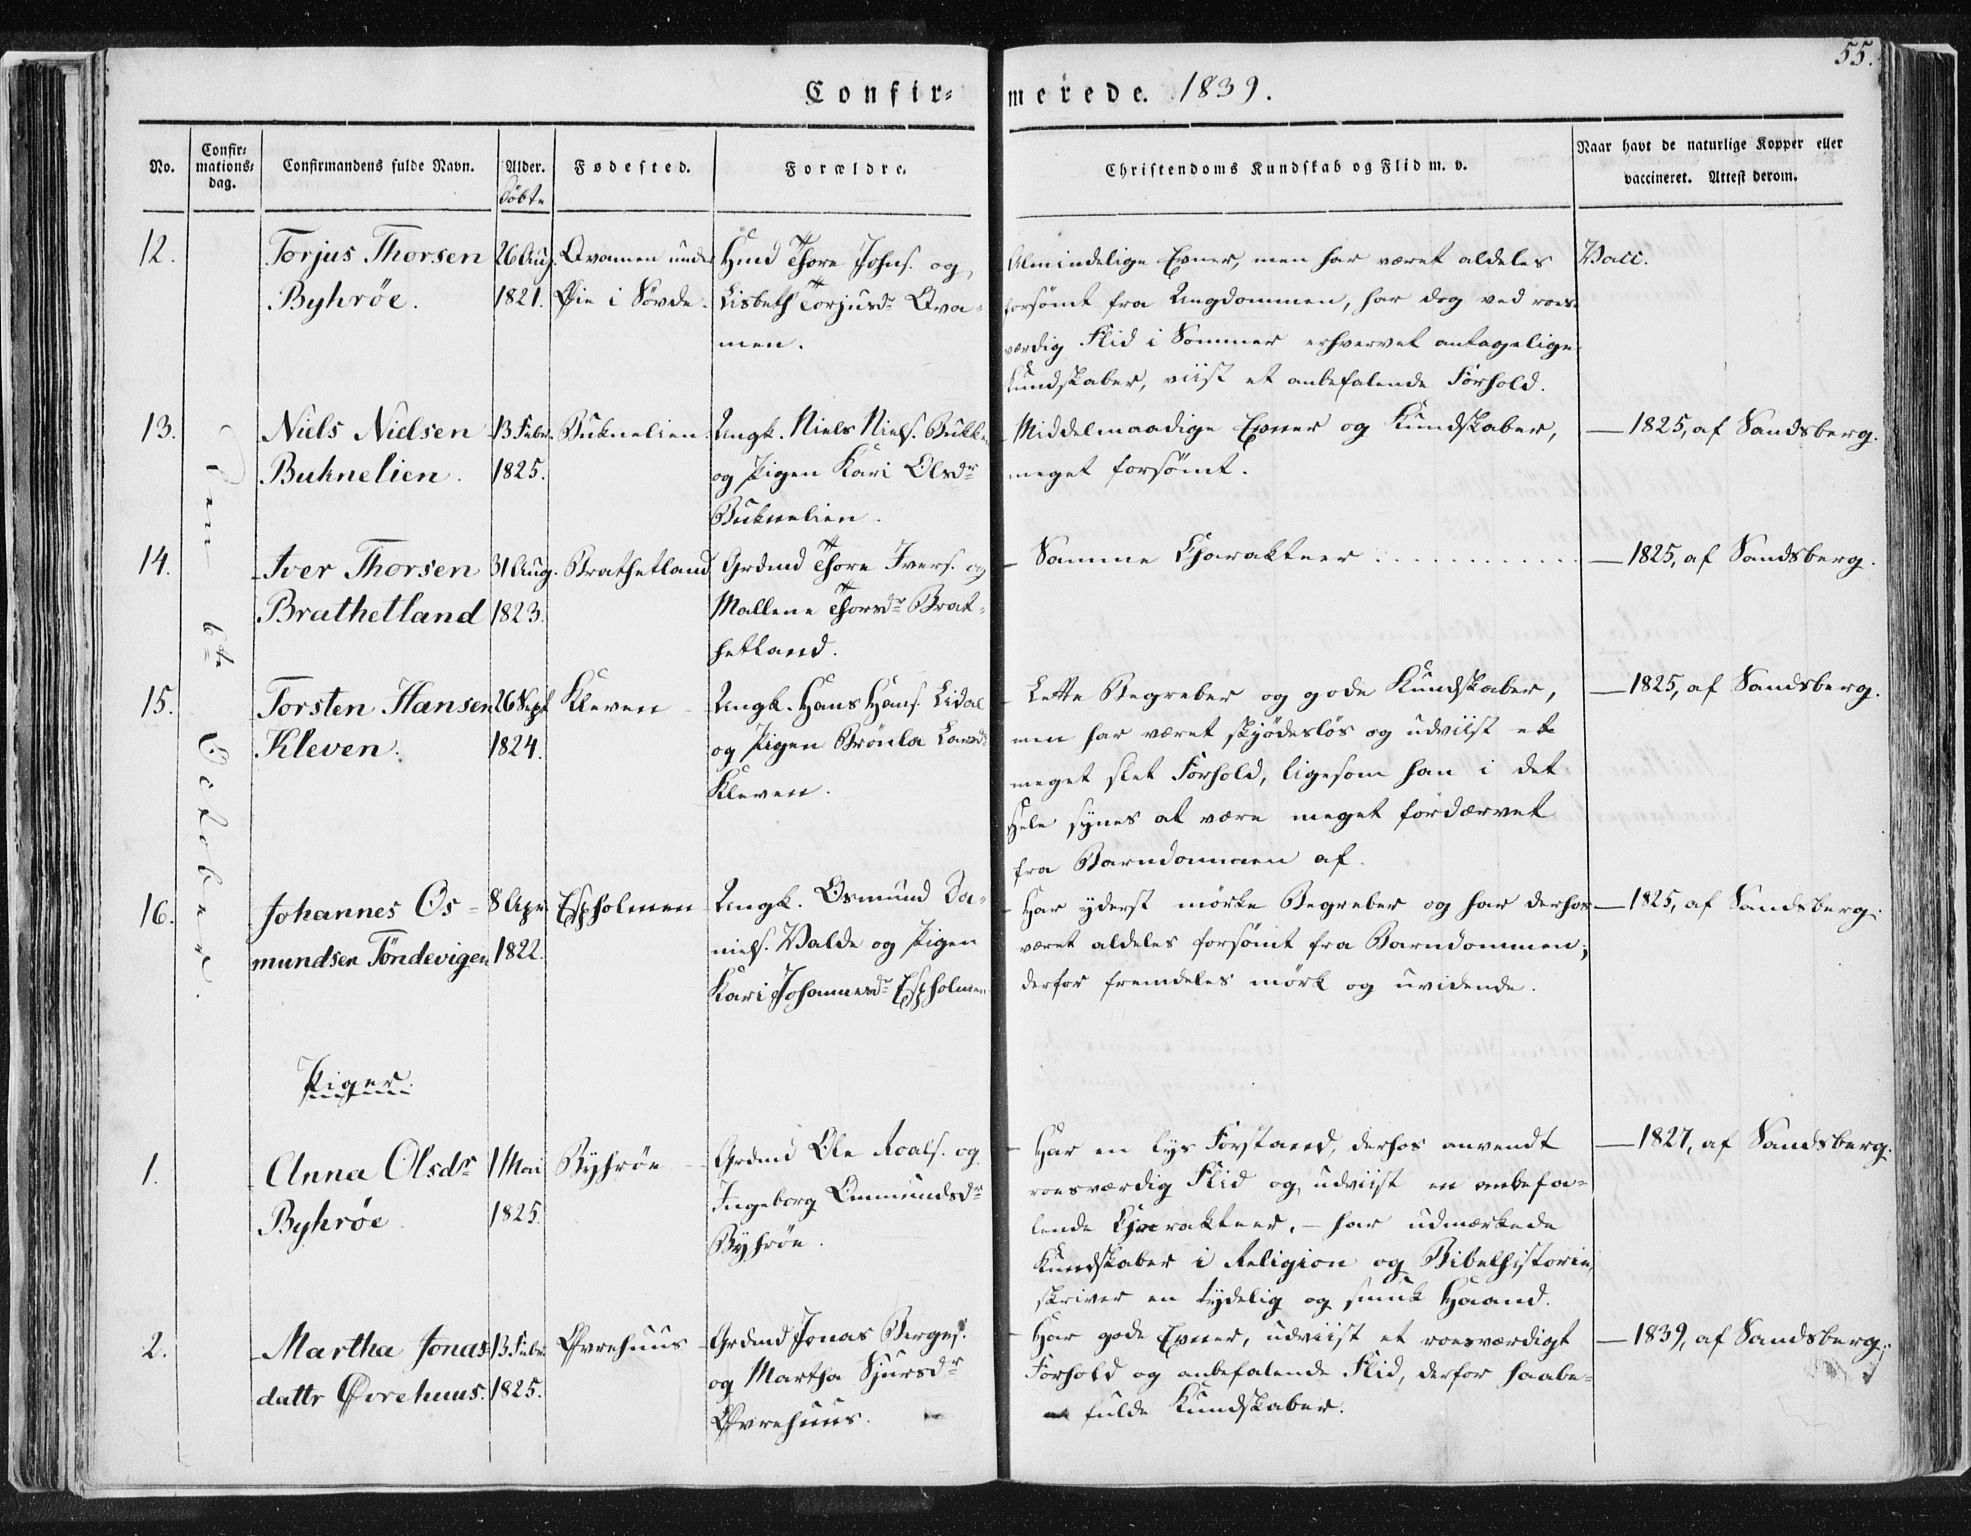 55.
Confir- merede. 1839.
No.
Confir-
mations-
dag.
Confirmandens fulde Navn.
Alder.
Döbte
Fødested.
Forældre.
Christendoms Kundskab og Flid m. v.
Naar havt de naturlige Kopper eller
vaccineret. Attest derom.
Den 6te October.
12.
Torjus Thorsen
Byhröe.
26 Aug.
1821.
Qvamen under
Øie i Sövde.
Hmd Thore Johns. og
Lisbeth Torjusdr Qva-
men.
Almindelige Evner, men har været aldeles
forsömt fra Ungdommen, har dog ved roes-
værdig Flid i Sommer erhvervet antagelige
Kundskaber, viist et anbefalende Forhold.
Vacc.
13.
Niels Nielsen
Buknelien.
13 Febr.
1825.
Buknelien.
Ungk. Niels Niels. Bukken
og Pigen Kari Olsdr
Buknelien.
- Middelmaadige Evner og Kundskaber,
meget forsömt.
— 1825, af Sandsberg.
14.
Iver Thorsen
Brathetland
31 Aug.
1823.
Brathetland
Grdmd Thore Ivers. og
Mallene Thorsdr Brat-
hetland.
- Samme Charakteer . . . . . . . . . . .
— 1825, af Sandsberg.
15.
Torsten Hansen
Kleven.
26 Sept
1824.
Kleven
Ungk. Hans Hans. Lidal
og Pigen Brönla Larsdr
Kleven.
- Lette Begreber og gode Kundskaber,
men har været skjödeslös og udviist et
meget slet Forhold, ligesom han i det
Hele synes at være meget fordærvet
fra Barndommen af.
— 1825, af Sandsberg.
16.
Johannes Os-
mundsen Töndevigen
8 Apr.
1822.
Espholmen
Ungk. Osmund Da-
niels. Valde og Pigen
Kari Johannesdr Espholmen
- Har yderst mörke Begreber og har derhos
været aldeles forsömt fra Barndommen,
derfor fremdeles mörk og uvidende.
— 1825, af Sandsberg.
Piger.
1.
Anna Olsdr
Byhröe
1 Mai
1825.
Byhröe
Grdmd Ole Roals. og
Ingeborg Ommundsdr
Byhröe.
- Har en lys Forstand, derhos anvendt
roesværdig Flid og udviist en anbefa-
lende Charakteer, - har udmærkede
Kundskaber i Religion og Bibelhistorie,
skriver en tydelig og smuk Haand.
— 1827, af Sandsberg.
2.
Martha Jonas-
dattr Øvrehuus.
13 Febr.
1825.
Øvrehuus
Grdmd Jonas Berges.
og Martha Sjursdr
Øvrehuus.
- Har gode Evner, udviist et roesværdigt
Forhold og anbefalende Flid, derfor haabe-
fulde Kundskaber.
— 1839, af Sandsberg.